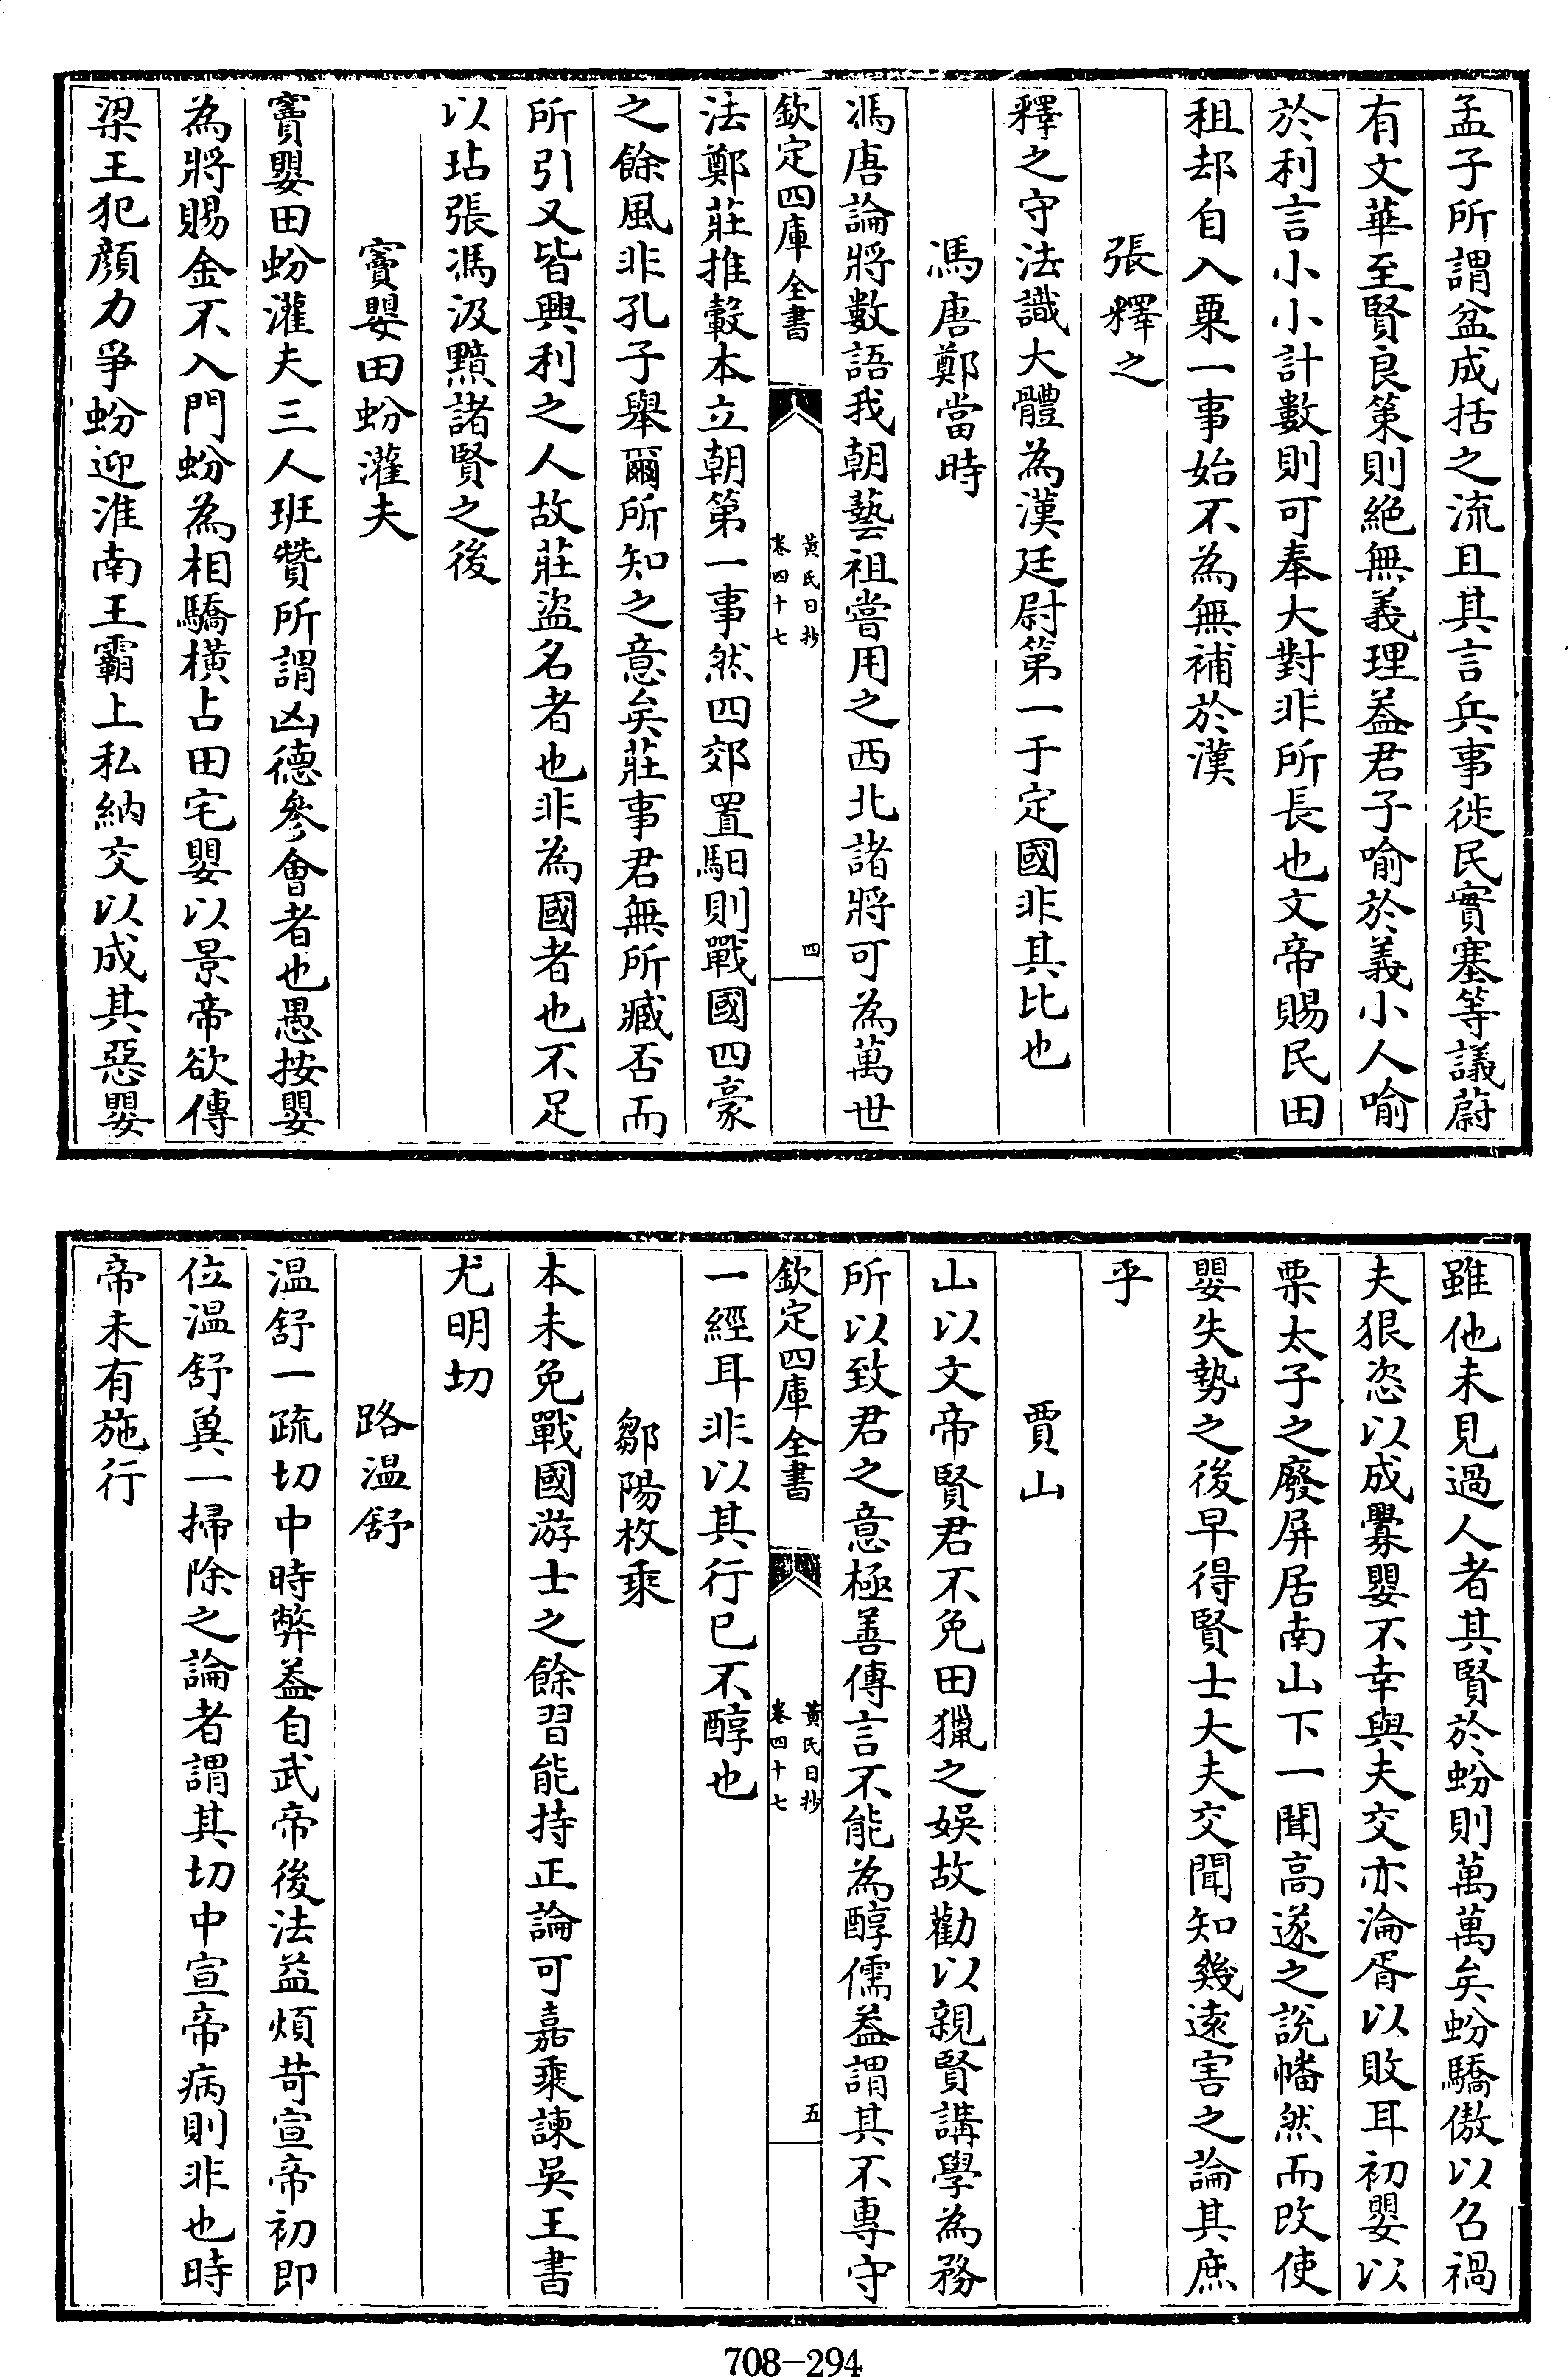 孟子所謂盆成括之流且其言兵事徙民實塞等議蔚
有文華至賢良策則絕無義理葢君子喻於義小人喻
於利言小小計數則可奉大對非所長也文帝賜民田
租却自入粟一事始不為無補於漢
張釋之
釋之守法識大體為漢廷尉第一于定國非其比也
馮唐鄭當時
馮唐論將數語我朝藝祖嘗用之西北諸將可為萬世
欽定四庫全書
黃氏日抄
卷四十七
四
法鄭莊推轂本立朝第一事然四郊置馹則戰國四豪
之餘風非孔子舉爾所知之意矣莊事君無所臧否而
所引又皆興利之人故莊盜名者也非為國者也不足
以玷張馮汲黯諸賢之後
竇嬰田蚡灌夫
竇嬰田蚡灌夫三人班贊所謂凶德參會者也愚按嬰
為將賜金不入門蚡為相驕橫占田宅嬰以景帝欲傳
梁王犯顏力爭蚡迎淮南王霸上私納交以成其惡嬰
雖他未見過人者其賢於蚡則萬萬矣蚡驕傲以召禍
夫狠恣以成釁嬰不幸與夫交亦淪胥以敗耳初嬰以
栗太子之廢屏居南山下一聞高遂之說幡然而改使
嬰失勢之後早得賢士大夫交聞知幾遠害之論其庶
乎
賈山
山以文帝賢君不免田獵之娛故勸以親賢講學為務
所以致君之意極善傳言不能為醇儒葢謂其不專守
欽定四庫全書
黃氏日抄
卷四十七
五
一經耳非以其行已不醇也
鄒陽枚乘
本未免戰國游士之餘習能持正論可嘉乘諫吳王書
尤明切
路溫舒
溫舒一疏切中時弊葢自武帝後法益煩苛宣帝初即
位溫舒兾一掃除之論者謂其切中宣帝病則非也時
帝未有施行
708-294